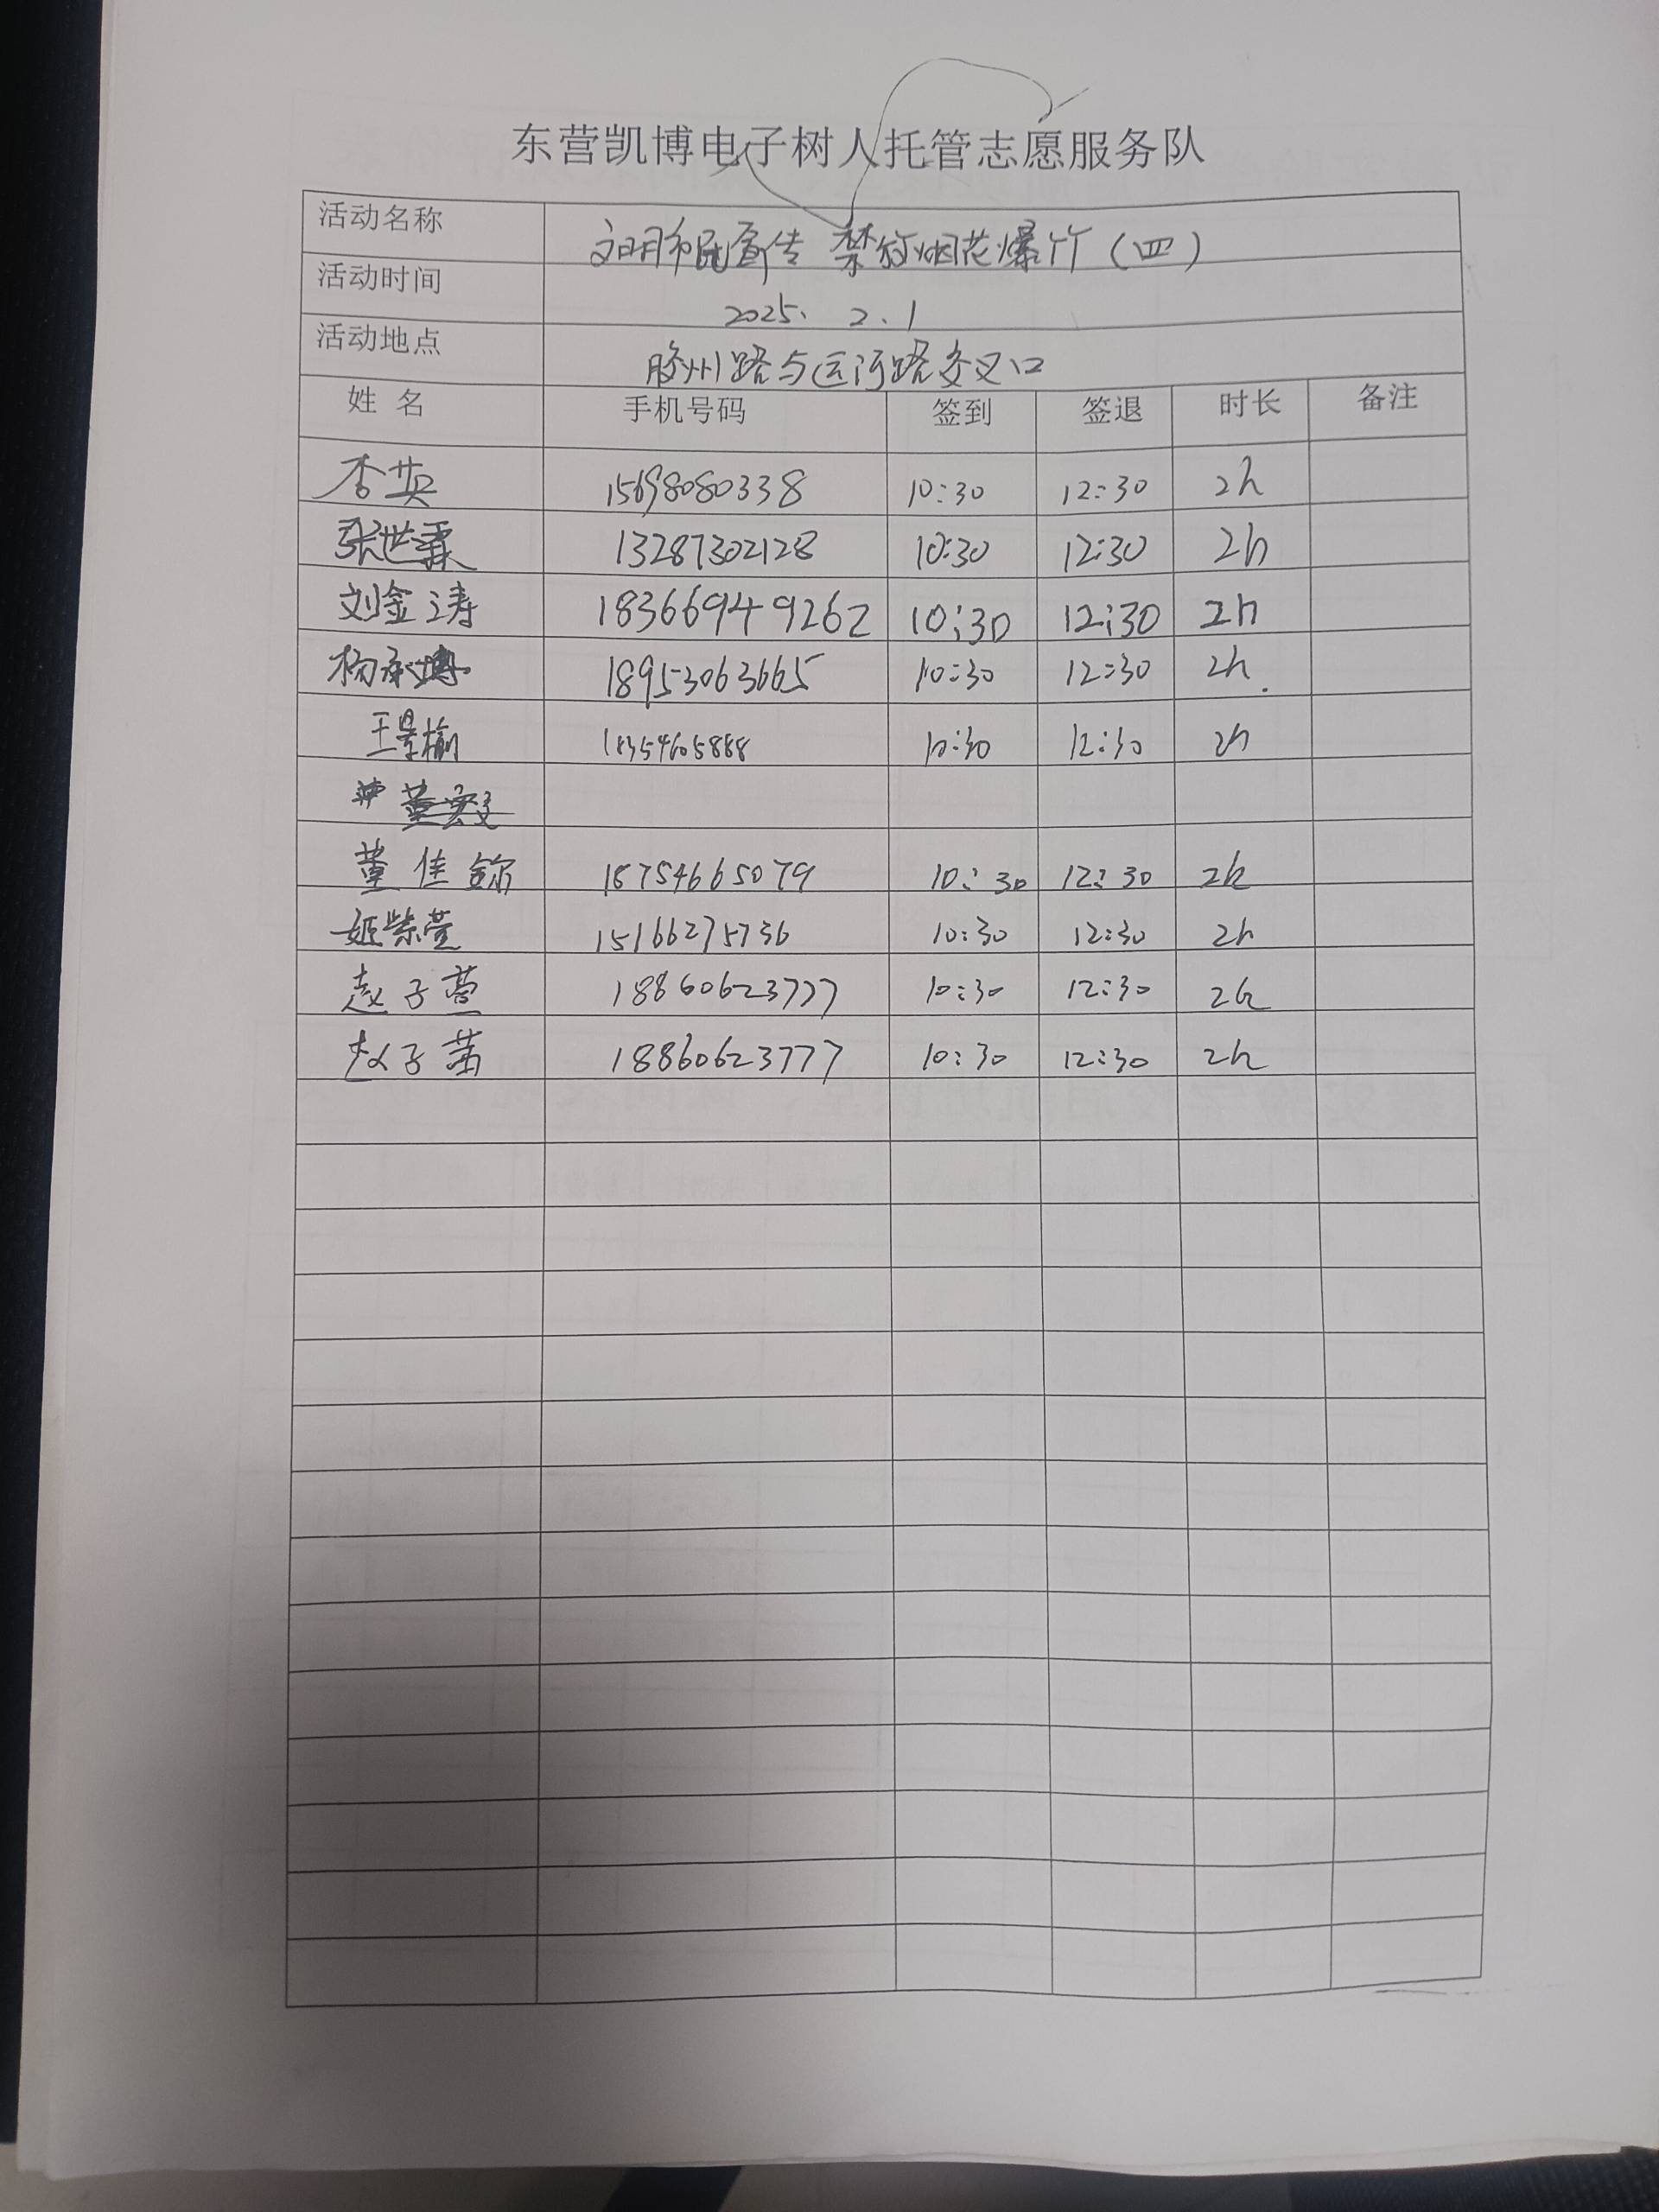 东营凯博电子树人托管志愿服务队
活动名称 文明市民宣传 禁放烟花爆竹(四)
活动时间 2025. 2.1
活动地点 胶州路与运河路交叉口
姓 名 手机号码 签到 签退 时长 备注
李英 15698080338 10:30 12:30 2h
张世霖 13287302128 10:30 12:30 2h
刘金涛 18366949262 10:30 12:30 2h
杨承博 18953063665 10:30 12:30 2h.
王景榆 18354605888 10:30 12:30 2h
董佳 18754665079 10:30 12:30 2h
姬紫萱 15166275736 10:30 12:30 2h
赵子萱 18860623777 10:30 12:30 2h
赵子茜 18860623777 10:30 12:30 2h